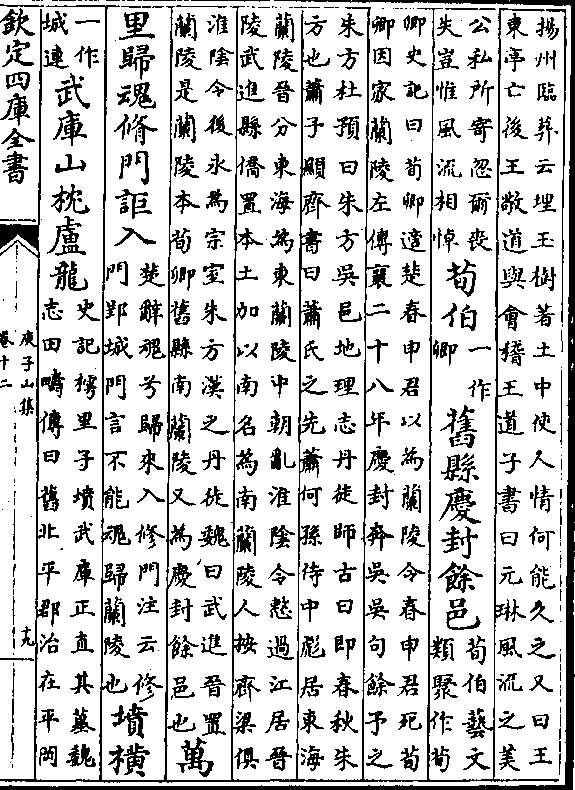 揚州臨葬云埋玉樹著土中使人情何能久之又曰王
東亭亡後王敬道與會稽王道子書曰元琳風流之美
公私所寄忽爾喪
失豈惟風流相悼
荀伯
一作
卿
舊縣慶封餘邑
荀伯藝文
類聚作荀
卿史記曰荀卿適楚春申君以為蘭陵令春申君死荀
卿因家蘭陵左傳襄二十八年慶封奔吳吳句餘予之
朱方杜預曰朱方吳邑地理志丹徒師古曰即春秋朱
方也蕭子顯齊書曰蕭氏之先蕭何孫侍中彪居東海
蘭陵晉分東海為東蘭陵中朝亂淮陰令整過江居晉
陵武進縣僑置本土加以南名為南蘭陵人按齊梁俱
淮陰令後永為宗室朱方漢之丹徒魏曰武進晉置
蘭陵是蘭陵本荀卿舊縣南蘭陵又為慶封餘邑也
萬
里歸魂脩門詎入
楚辭魂兮歸來入修門注云修
門郢城門言不能魂歸蘭陵也
墳橫
一作
城連
武庫山枕盧龍
史記樗里子墳武庫正直其墓魏
志田疇傳曰舊北平郡治在平岡
欽定四庫全書
庾子山集
卷十二
十九